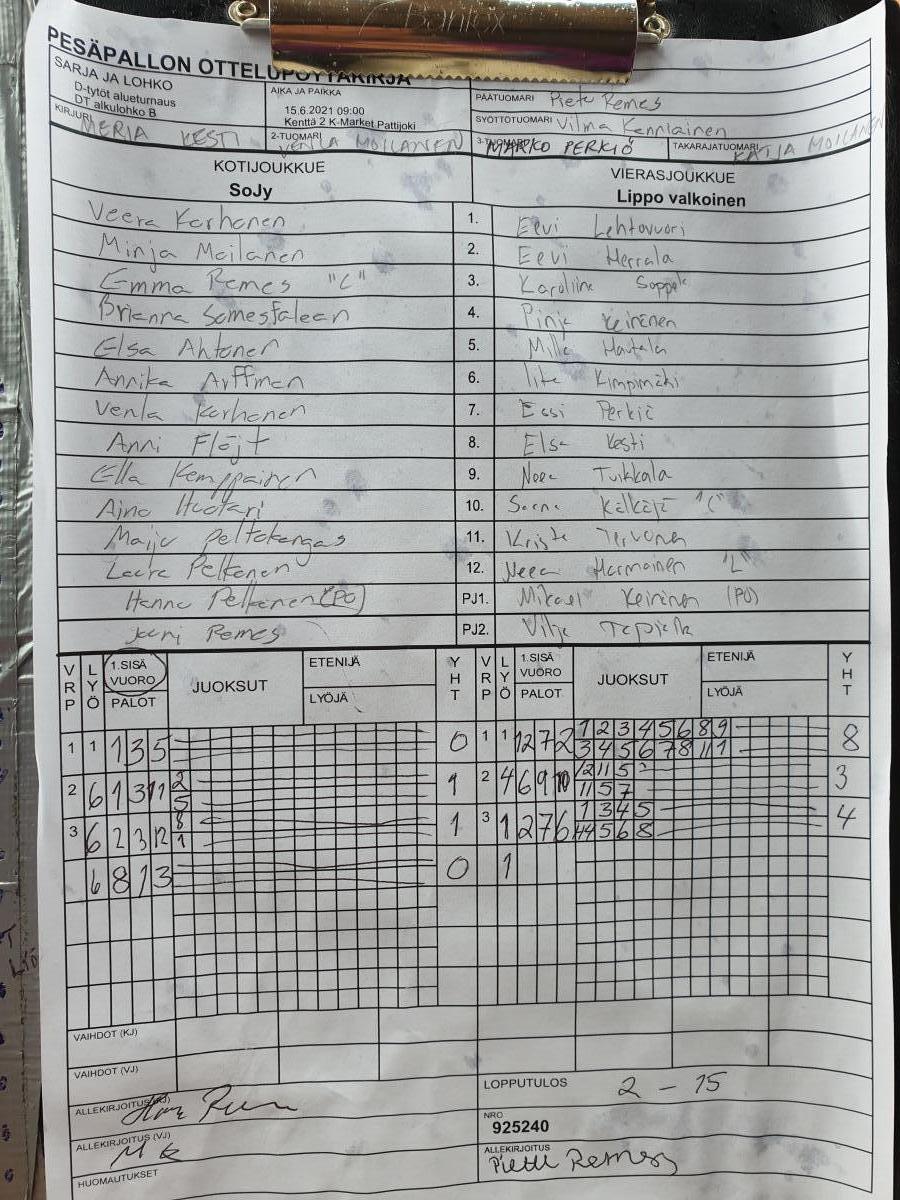 Bantex
PESÄPALLON OTTELUPÖYTÄKIRJA
SARJA JA LOHKO
D-tytöt alueturnaus
DT alkulohko B
AIKA JA PAIKKA
15.6.2021 09:00
Kenttä 2 K-Market Pattijoki
PÄÄTUOMARI Piete Remes
SYÖTTÖTUOMARI Vilma Kenniainen
KIRJURI MERJA KESTI
2-TUOMARI VENLA MOILANEN
MARKO PERKIÖ
TAKARAJATUOMARI KATJA MOILANEN
KOTIJOUKKUE
SoJy
VIERASJOUKKUE
Lippo valkoinen
Veera Korhonen 1. Eevi Lehtovuori
Minja Moilanen 2. Eevi Herrala
Emma Remes "C" 3. Karoliine
Brianna 4. Pinja Keinänen
Elsa Ahtonen 5. Milla Hautala
Annika Arffman 6. Iita Kimpimäki
Venla Korhonen 7. Essi Perkiö
Anni Flöjt 8. Elsa Kesti
Ella Kemppainen 9. Neea Tuikkala
Aino Huotari 10. "C"
Maiju Peltokangas 11. Krista Tervonen
Laura Pelkonen 12. Neea "L"
Hannu Pelkonen (PO) PJ1. Mikael Keinänen (PO)
Remes PJ2.
VRP LYÖ 1.SISÄ VUORO PALOT JUOKSUT ETENIJÄ LYÖJÄ YHT VRP LYÖ 1.SISÄ VUORO PALOT JUOKSUT ETENIJÄ LYÖJÄ YHT
1 1 1 3 5 0 1 1 12 7 2 1 2 3 4 5 6 8 9 8
3 4 5 6 7 8 11 1
2 6 1 3 11 2 1 2 4 6 9 10 12 11 5 3
5 11 5 7
3 6 2 3 12 8 1 3 1 2 7 6 1 3 4 5 4
1 4 5 6 8
6 8 1 3 0 1
VAIHDOT (KJ)
VAIHDOT (VJ)
ALLEKIRJOITUS (KJ)
LOPPUTULOS 2 - 15
ALLEKIRJOITUS (VJ) M K
NRO
925240
HUOMAUTUKSET
ALLEKIRJOITUS
Remes